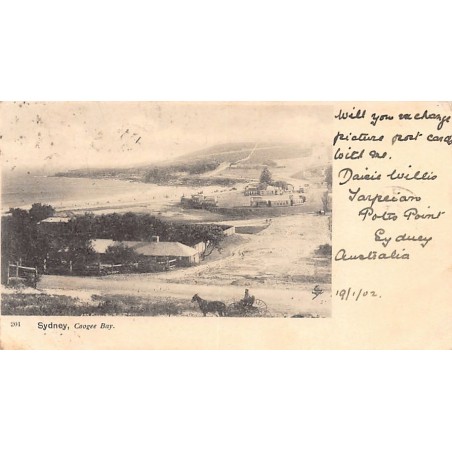 Will you exchange
picture post cards
With me.
Daisie Willis
Tarpeian
Potts Point
Sydney
Australia
19/1/02.
201 Sydney, Coogee Bay.